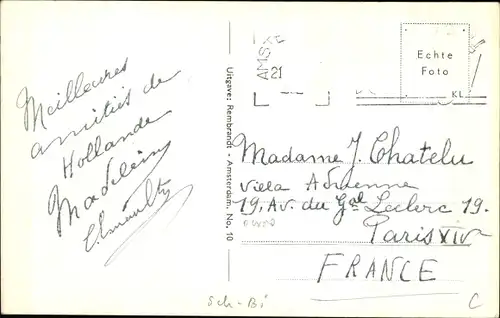 Meilleures
amitiés de
Hollande
Madeleine
Uitgave: Rembrandt - Amsterdam. No. 10
AMST
21
Echte
Foto
KL.
Madame J. Chatelu
Villa Adrienne
19, Av. du Gal Leclerc 19.
Paris XIV
FRANCE
Sch-Bi
C